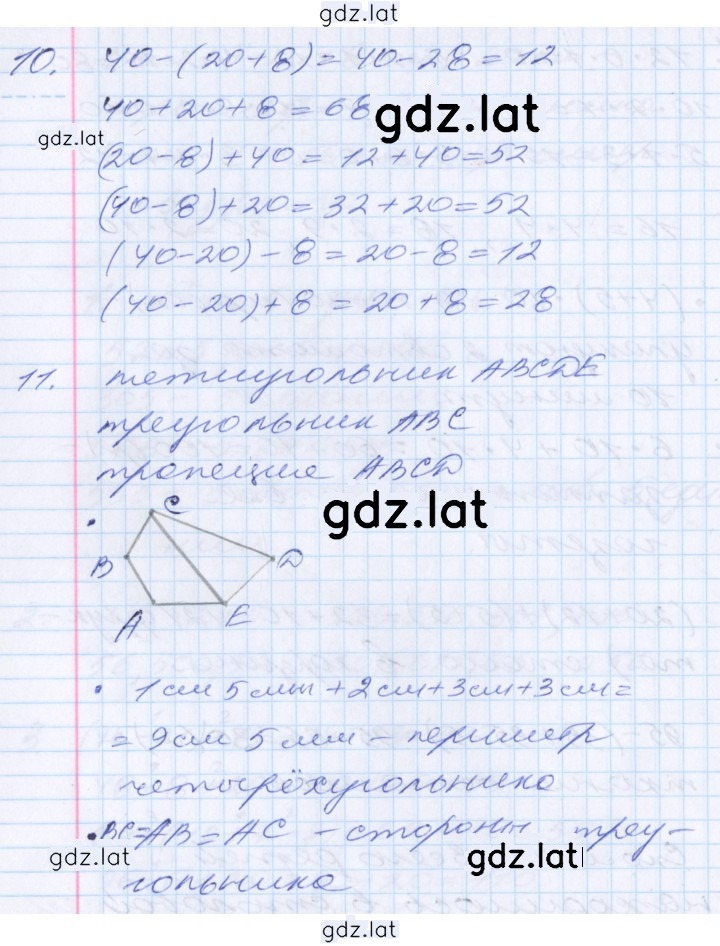 gdz.lat
10. 40-(20+8)=40-28=12
40+20+8=68
gdz.lat
gdz.lat
(20-8)+40=12+40=52
(40-8)+20=32+20=52
(40-20)-8=20-8=12
(40-20)+8=20+8=28
11. пятиугольник ABCDE
треугольник ABC
трапеция ABCD
gdz.lat
C
B
D
A
E
• 1см 5мм+2см+3см+3см=
=9см 5мм - периметр
четырёхугольника
• BC=AB=AC - стороны треу-
gdz.lat
gdz.lat
гольника
gdz.lat